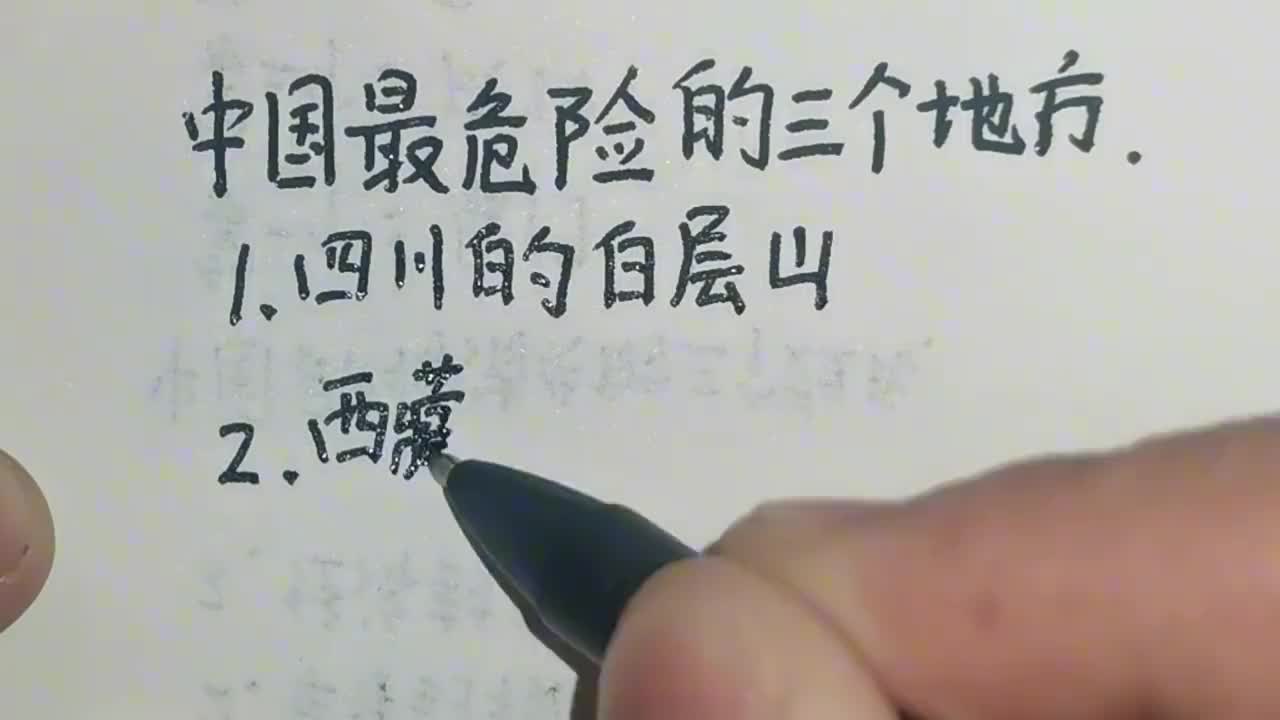 中国最危险的三个地方.
1.四川的白层山
2.西藏